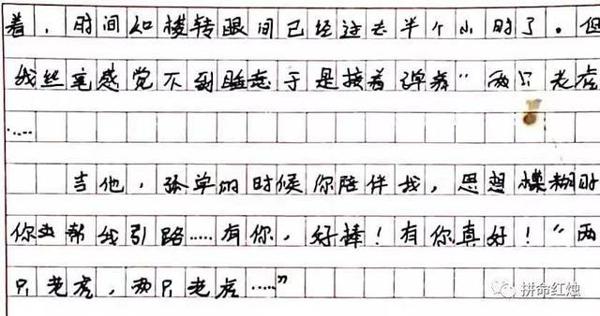 着，时间如梭转眼间已经过去半个小时了。但
我丝毫感觉不到睡意于是接着弹奏“两只老虎
……
当他，孤单的时候你陪伴我，思想模糊时
你却帮我引路……有你，好棒！有你真好！“两
只老虎，两只老虎……”
拼命红烛